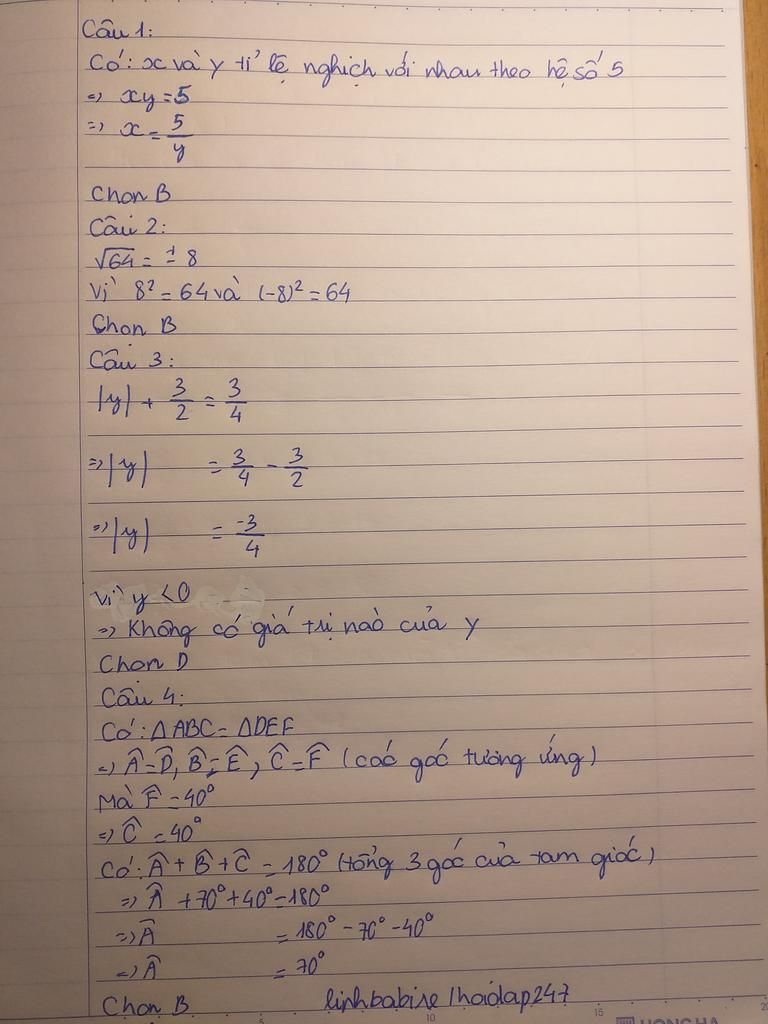 Câu 1:
Có: x và y tỉ lệ nghịch với nhau theo hệ số 5
=> xy = 5
=> x = 5/y
Chọn B
Câu 2:
√64 = ± 8
Vì 8² = 64 và (-8)² = 64
Chọn B
Câu 3:
|y| + 3/2 = 3/4
=> |y| = 3/4 - 3/2
=> |y| = -3/4
Vì y < 0
=> Không có giá trị nào của y
Chọn D
Câu 4:
Có: ΔABC = ΔDEF
=> Â = D̂, B̂ = Ê, Ĉ = F̂ (các góc tương ứng)
Mà F̂ = 40°
=> Ĉ = 40°
Có: Â + B̂ + Ĉ = 180° (tổng 3 góc của tam giác)
=> Â + 70° + 40° = 180°
=> Â = 180° - 70° - 40°
=> Â = 70°
Chọn B linhbabise/hoidap247
5 10 15 20
HONG HA